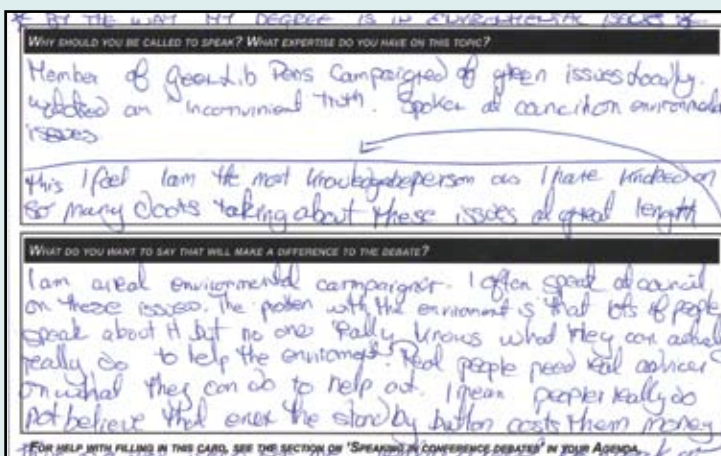 * BY THE WAY MY DEGREE IS IN ENVIRONMENTAL ISSUES *
WHY SHOULD YOU BE CALLED TO SPEAK? WHAT EXPERTISE DO YOU HAVE ON THIS TOPIC?
Member of Green Lib Dems Campaigned of green issues locally.
watched an "inconvinient truth". Spoken at council on environmental
issues
this I feel I am the most knowledgable person as I have knocked on
so many doors talking about these issues at great length
WHAT DO YOU WANT TO SAY THAT WILL MAKE A DIFFERENCE TO THE DEBATE?
I am a real environmental campaigner. I often speak at council
on these issues. The problem with the environment is that lots of people
speak about it but no one really knows what they can
really do to help the environment. Real people need real advice
on what they can do to help out. I mean people really do
not believe that even the standby button costs them money
FOR HELP WITH FILLING IN THIS CARD, SEE THE SECTION ON 'SPEAKING IN CONFERENCE DEBATES' IN YOUR AGENDA.